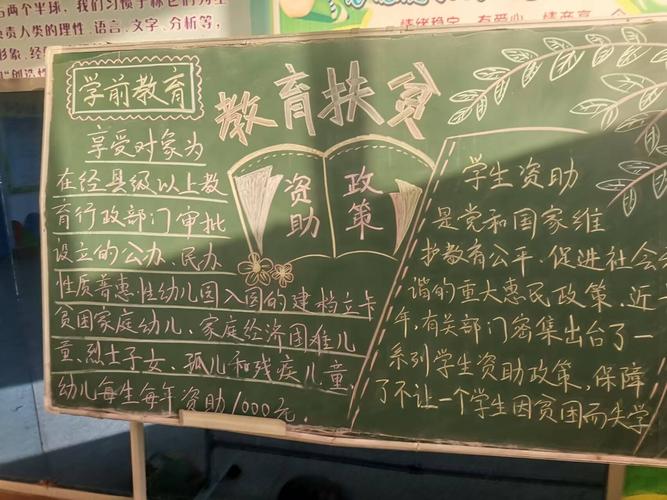 两个半球，我们习惯于称它们为左
责人类的理性、语言、文字、分析等，
形象、经
情绪稳定 有爱心
学前教育
教育扶贫
享受对象为
在经县级以上教
育行政部门审批
设立的公办、民办
性质普惠性幼儿园入园的建档立卡
贫困家庭幼儿、家庭经济困难儿
童、烈士子女、孤儿和残疾儿童，
幼儿每生每年资助1000元.
资助
政策
学生资助
是党和国家维
护教育公平、促进社会
谐的重大惠民政策，近
年，有关部门密集出台了一
系列学生资助政策，保障
了不让一个学生因贫困而失学